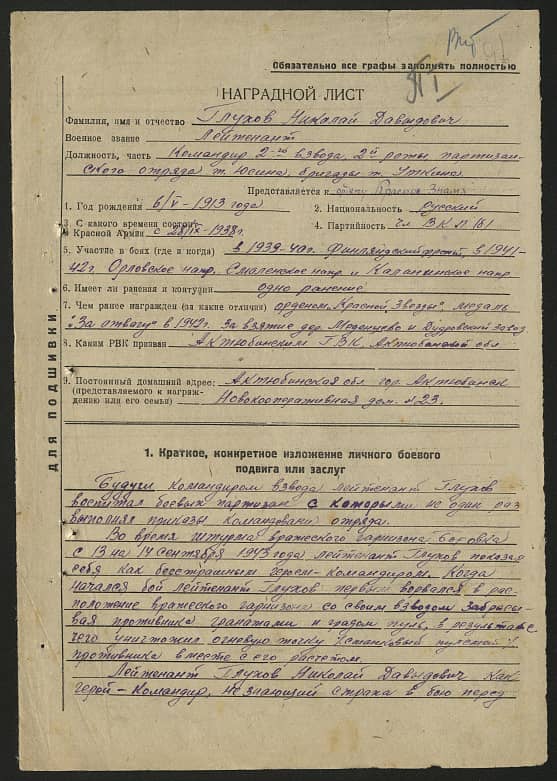 Обязательно все графы заполнять полностью
НАГРАДНОЙ ЛИСТ
Фамилия, имя и отчество Глухов Николай Давыдович
Военное звание Лейтенант
Должность, часть Командир 2-го взвода, 2й роты партизан-
ского отряда т. Юсина, бригады т. Уткина
Представляется к Красное Знамя
1. Год рождения 6/V-1913 года 2. Национальность Русский
3. С какого времени состоит
в Красной Армии с 28/IX-1938г. 4. Партийность чл ВКП(б)
5. Участие в боях (где и когда) в 1939-40г. Финляндский фронт, в 1941-
42г. Орловское напр. Смоленское напр и Калининское напр
6. Имеет ли ранения и контузии одно ранение
7. Чем ранее награжден (за какие отличия) орденом „Красной Звезды", медаль
"За отвагу" в 1942г. За взятие дер. и завод
8. Каким РВК призван Актюбинским ГВК, Актюбинской обл
"
9. Постоянный домашний адрес: Актюбинская обл гор. Актюбинск
(представляемого к награж-
дению или его семьи) Новокооперативная дом. №23.
ДЛЯ ПОДШИВКИ
1. Краткое, конкретное изложение личного боевого
подвига или заслуг
Будучи командиром взвода лейтенант Глухов
воспитал боевых партизан с которыми не один раз
выполнял приказы командования отряда.
Во время штурма вражеского гарнизона Боровка
с 13 на 14 сентября 1943 года лейтенант Глухов показал
себя как бесстрашным героем-командиром. Когда
начался бой лейтенант Глухов первый ворвался в рас-
положение вражеского гарнизона со своим взводом забрасы-
вая противника гранатами и градом пуль, в результате
чего уничтожил огневую точку /станковый пулемет/
противника вместе с его расчетом.
Лейтенант Глухов Николай Давыдович как
герой-командир, не знающий страха в бою перед